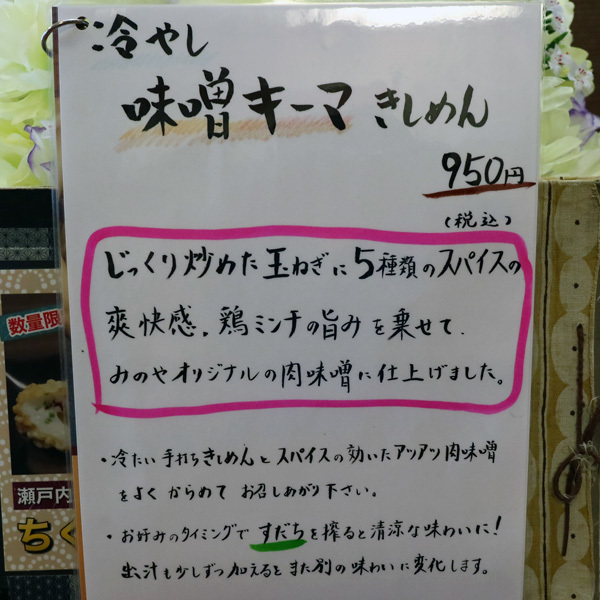 冷やし
味噌キーマきしめん
950円
(税込)
じっくり炒めた玉ねぎに5種類のスパイスの
爽快感、鶏ミンチの旨みを乗せて、
みのやオリジナルの肉味噌に仕上げました。
・冷たい手打ちきしめんとスパイスの効いたアツアツ肉味噌
をよくからめてお召しあがり下さい。
・お好みのタイミングですだちを搾ると清涼な味わいに!
出汁も少しずつ加えるとまた別の味わいに変化します。
数量限
瀬戸内
ちく